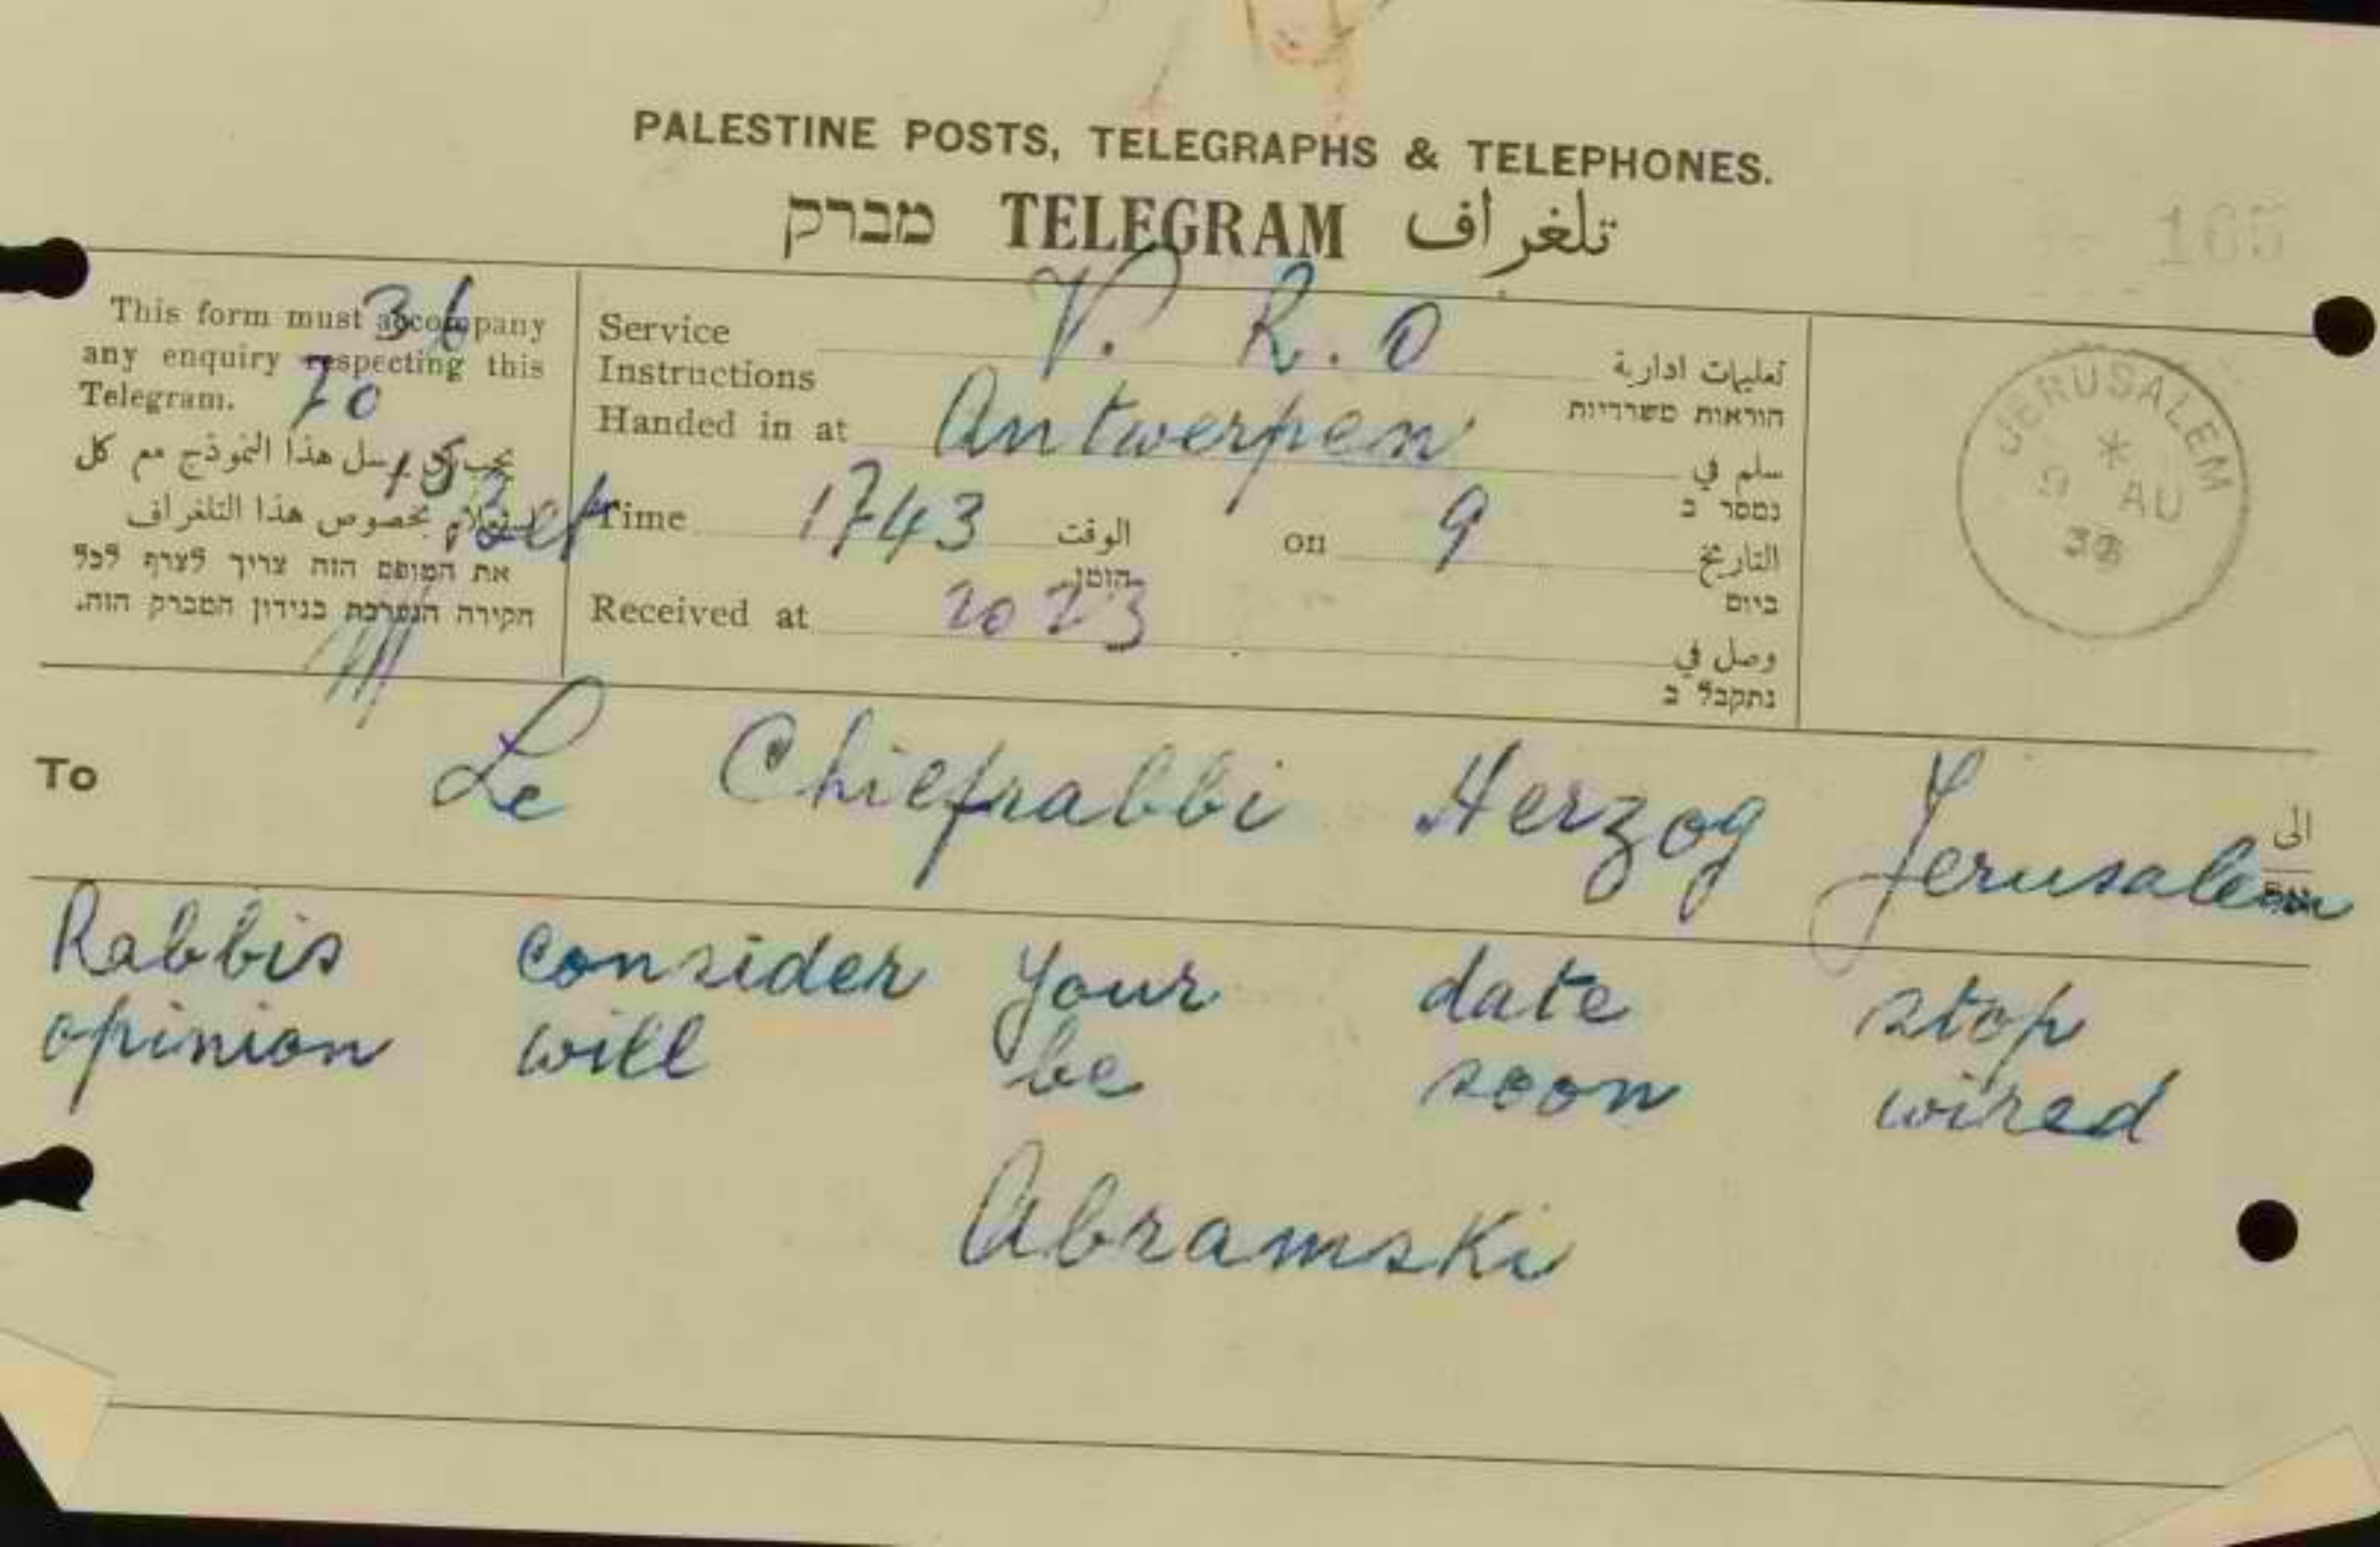 PALESTINE POSTS, TELEGRAPHS & TELEPHONES.
מברק TELEGRAM تلغراف
165
This form must accompany
any enquiry respecting this
Telegram.
36
70
يجب ان يرسل هذا النموذج مع كل
استعلام بخصوص هذا التلغراف
את הטופס הזה צריך לצרף לכל
חקירה הנערכת בנידון המברק הזה.
Service
Instructions
V. R. O
تعليمات ادارية
הוראות משרדיות
Handed in at Antwerpen سلم في
נמסר ב
Time 1743 الوقت
הזמן
on 9 التاريخ
ביום
Received at 20 23 وصل في
נתקבל ב
JERUSALEM
9 AU
To Le Chiefrabbi Herzog Jerusalem الى
Rabbis consider your date stop
opinion will be soon wired
Abramski